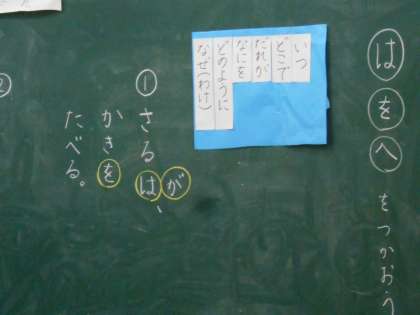 はをへをつかおう
いつ
どこで
だれが
なにを
どのように
なぜ(わけ)
①さるはが、
かきを
たべる。
②